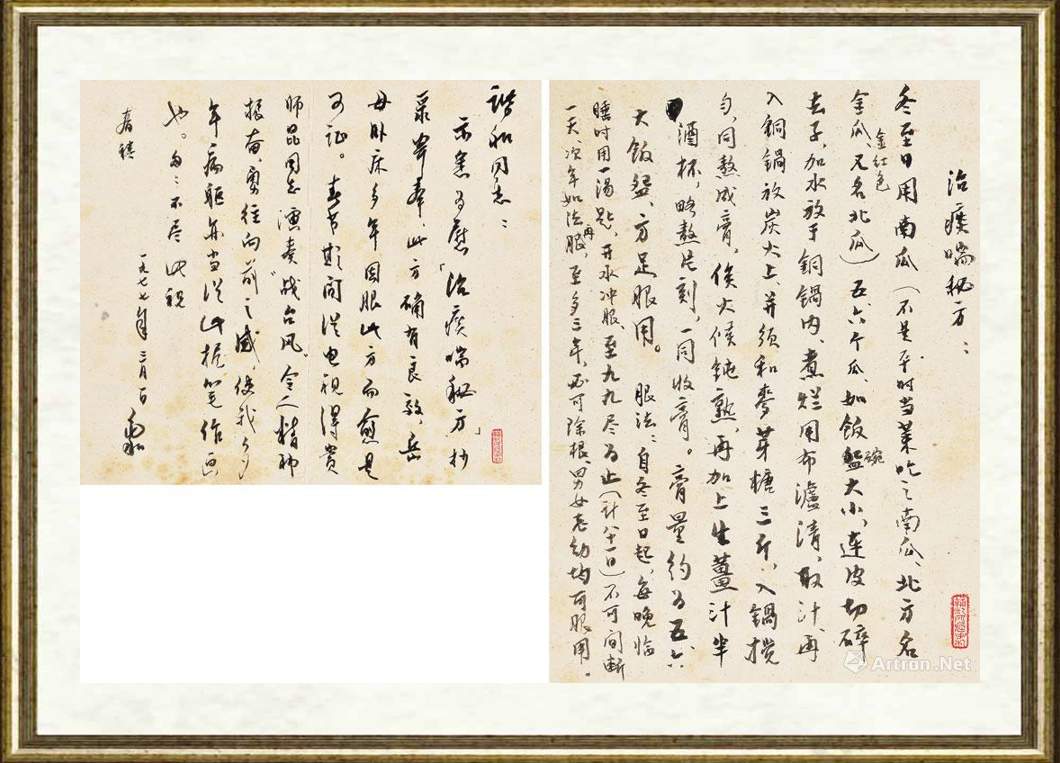 治痰喘秘方：
冬至日用南瓜（不是平时当菜吃之南瓜、北方名
金瓜、又名北瓜）五六个瓜、如饭盌大小、连皮切碎
金红色
碗
去子、加水放于铜锅内、煮烂用布滤清、取汁、再
入铜锅放炭火上、并须和麥芽糖三斤、入锅搅
匀、同熬成膏、俟火候钝熟、再加上生薑汁半
酒杯、略熬片刻、一同收膏。膏量约为五、六
大饭盌、方足服用。 服法：自冬至日起、每晚临
睡时用一汤匙、开水冲服、至九九尽为止（计八十一日）不可间断
一天、次年如法再服、至多三年、必可除根、男女老幼均可服用。
谐和同志：
示悉为慰「治痰喘秘方」抄
录奉、此方确有良效、岳
母卧床多年因服此方而愈是
可证。春节期间从电视得赏
师昆同志演奏“战台风”令人精神
振奋、勇往向前之感、使我多
年病躯亦当从此握笔作画
也。匆匆不尽 此祝
春禧
一九七七年三月一日
Artron.Net